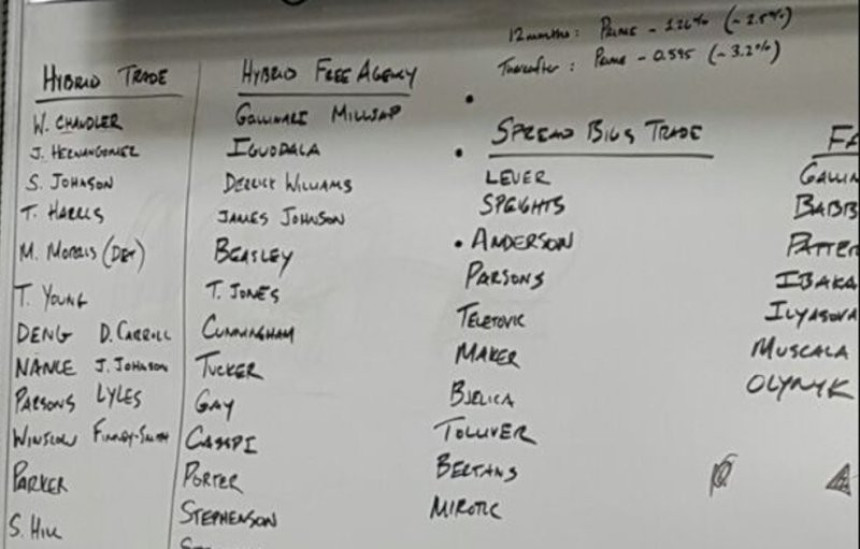 12 months: PRIME - 1.26% (-2.5%)
Thereafter: PRIME - 0.595 (-3.2%)
HYBRID TRADE
W. CHANDLER
J. HERNANGOMEZ
S. JOHNSON
T. HARRIS
M. MORRIS (DET)
T. YOUNG
DENG D. CARROLL
NANCE J. JOHNSON
PARSONS LYLES
WINSLOW FINNEY-SMITH
PARKER
S. HILL
HYBRID FREE AGENCY
GALLINARI MILLSAP
IGUODALA
DERRICK WILLIAMS
JAMES JOHNSON
BEASLEY
T. JONES
CUNNINGHAM
TUCKER
GAY
CASSPI
PORTER
STEPHENSON
SPREAD BIGS TRADE
LEUER
SPEIGHTS
• ANDERSON
PARSONS
TELETOVIC
MAKER
BJELICA
TOLLIVER
BERTANS
MIROTIC
FA
GALLIN
BABB
PATTER
IBAKA
ILYASOVA
MUSCALA
OLYNYK